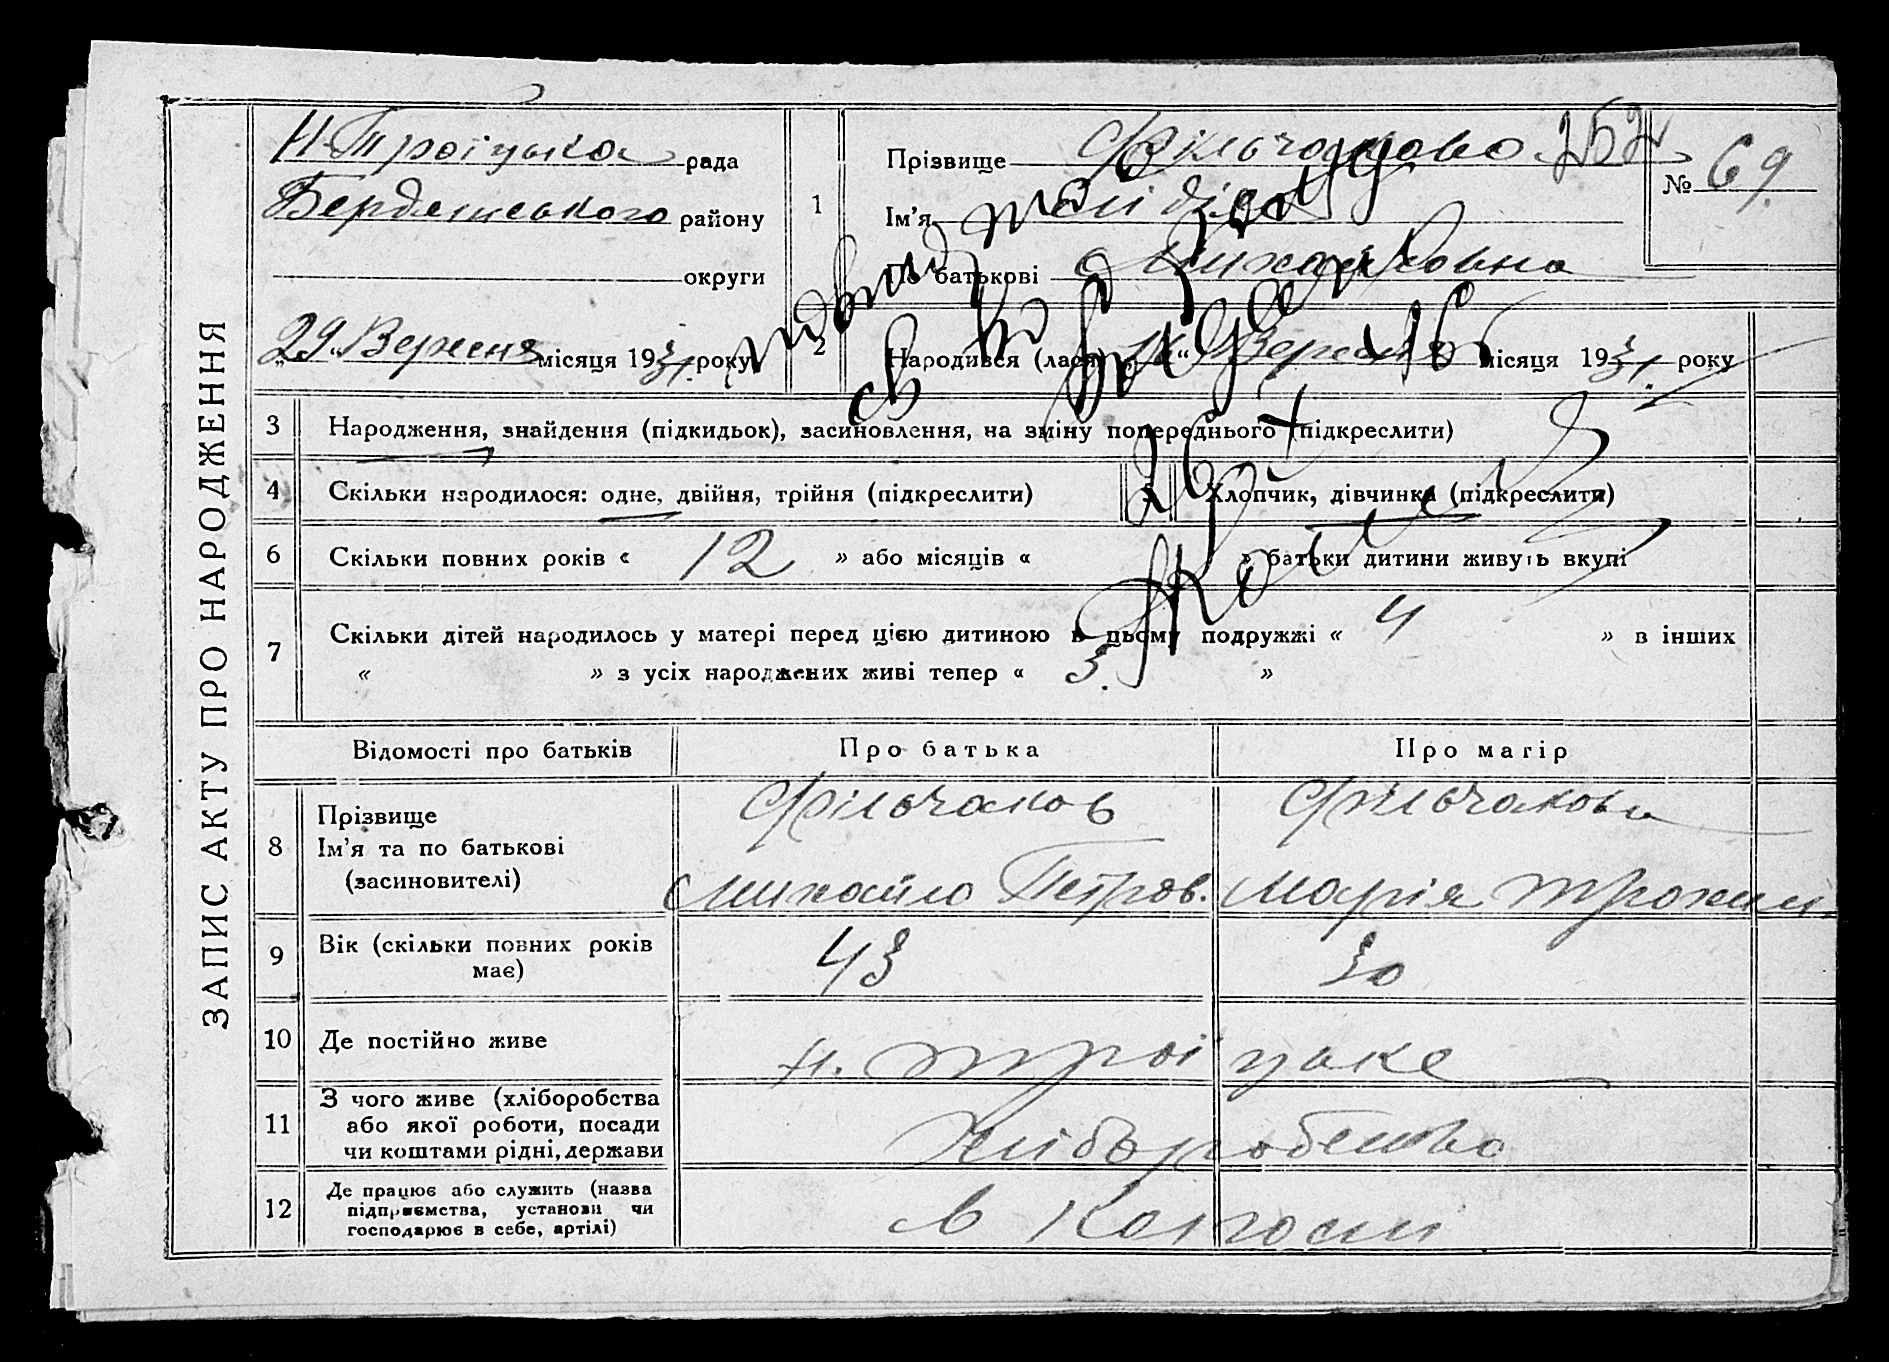 ЗАПИС АКТУ ПРО НАРОДЖЕННЯ
Н-Троїцька рада
Бердянського району
округи
„29“ Вересня місяця 1931 року
1
Прізвище Фільчакова 252
Ім’я Лідія
По батькові Михайловна
№ 69.
2
Народився (лася) „ “ Вересня місяця 1931. року
3 Народження, знайдення (підкидьок), засиновлення, на зміну попереднього (підкреслити)
4 Скільки народилося: одне, двійня, трійня (підкреслити)
Хлопчик, дівчинка (підкреслити)
6 Скільки повних років « 12 » або місяців « » батьки дитини живуть вкупі
7 Скільки дітей народилось у матері перед цією дитиною в цьому подружжі « 4 » в інших
« » з усіх народжених живі тепер « 3. »
Відомості про батьків Про батька Про матір
8 Прізвище
Ім’я та по батькові
(засиновителі)
Фільчаков
Михайло Петров.
Фільчакова
Марія Трохим.
9 Вік (скільки повних років
має)
43 30
10 Де постійно живе Н. Троїцьке
11 З чого живе (хліборобства
або якої роботи, посади
чи коштами рідні, держави
Хліборобство
12 Де працює або служить (назва
підприємства, установи чи
господарює в себе, артілі)
в Колгоспі